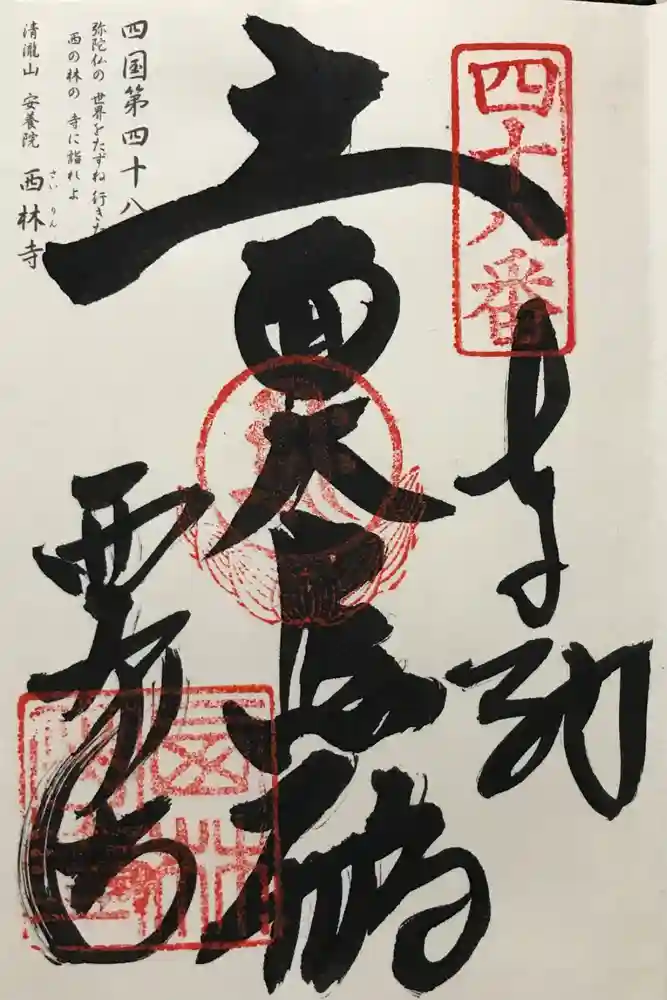 四十八番
奉納
十一面大悲
西林寺
四国第四十八
弥陀仏の 世界をたずね 行きた
西の林の 寺に詣れよ
清瀧山 安養院 西林寺
さい りん